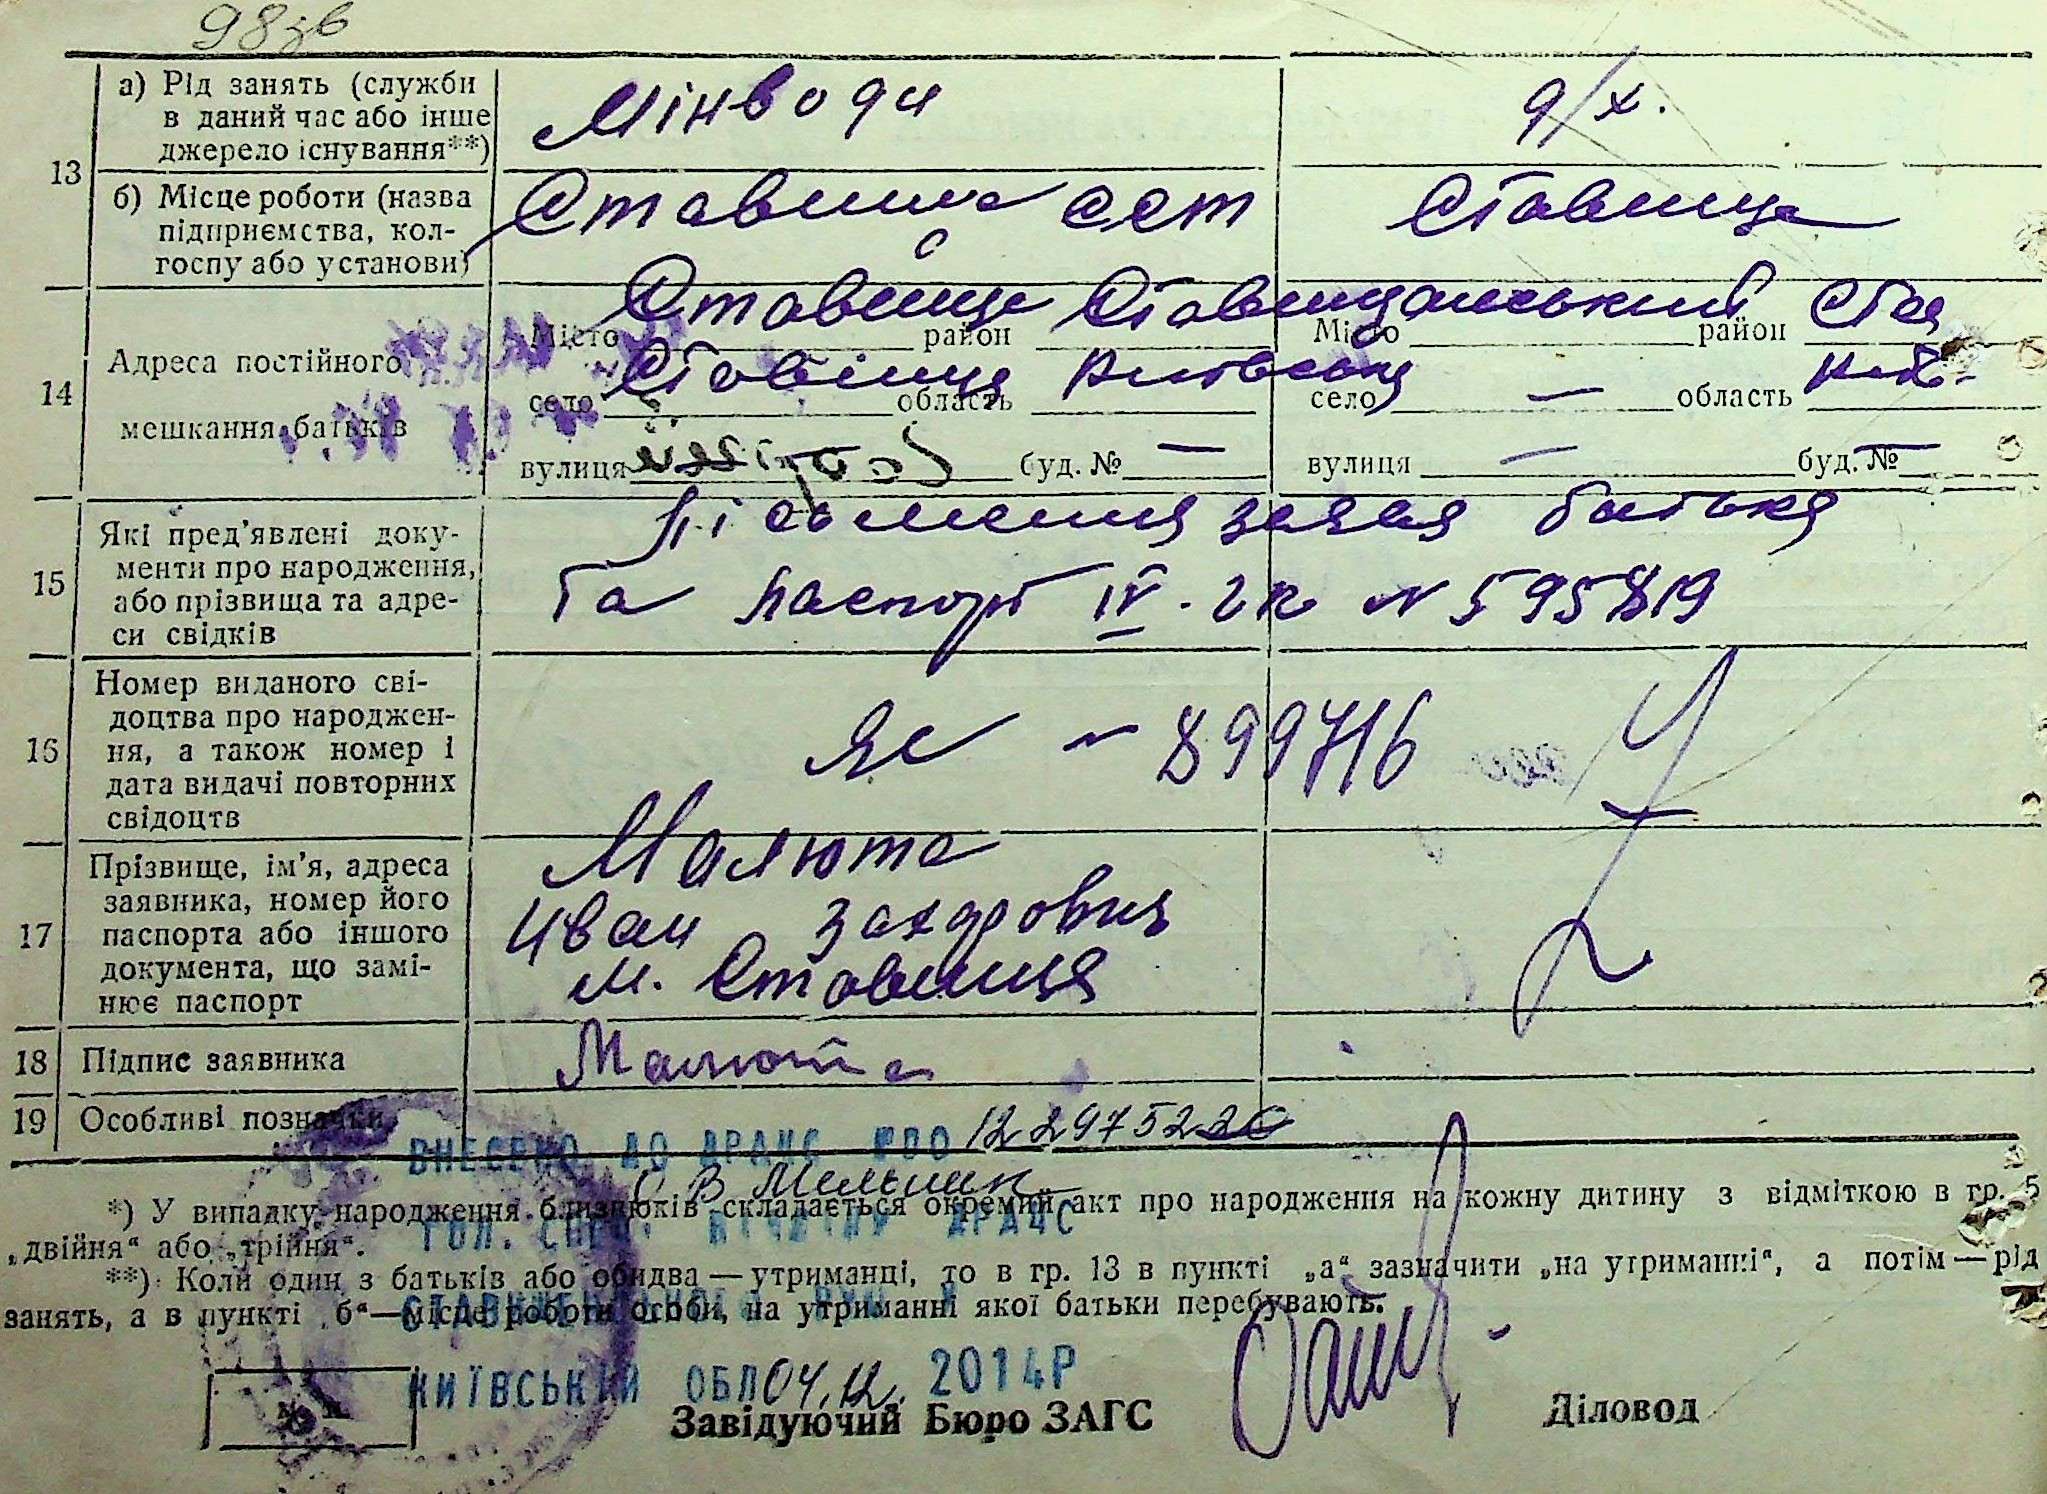 98зв
13
а) Рід занять (служби
в даний час або інше
джерело існування**)
Мінводи
д/х.
б) Місце роботи (назва
підприємства, кол-
госпу або установи)
Ставище ССТ
Ставище
14
Адреса постійного
мешкання батьків
Місто Ставище район Ставищанський
село Ставище область Київська
вулиця буд. № —
Місто район Став
село — область Київ.
вулиця — буд. № —
15
Які пред'явлені доку-
менти про народження,
або прізвища та адре-
си свідків
Письменна заява батька
та паспорт IV-ЗК № 595819
16
Номер виданого сві-
доцтва про народжен-
ня, а також номер і
дата видачі повторних
свідоцтв
ЯС ~ 899716
17
Прізвище, ім'я, адреса
заявника, номер його
паспорта або іншого
документа, що замі-
нює паспорт
Малюта
Иван Захарович
м. Ставище
18
Підпис заявника
Малюта
19
Особливі позначки
ВНЕСЕНО ДО ДРАЦС
С В Мельник
*) У випадку народження близнюків складається окремий акт про народження на кожну дитину з відміткою в гр. 5
„двійня“ або „трійня“.
ГОЛ. СПЕЦ. ВІДДІЛУ ДРАЦС
**) Коли один з батьків або обидва — утриманці, то в гр. 13 в пункті „а“ зазначити „на утриманні“, а потім — рід
занять, а в пункті б“—місце роботи особи, на утриманні якої батьки перебувають.
КИЇВСЬКІЙ ОБЛ 04.12. 2014Р
М. П.
Завідуючий Бюро ЗАГС
Діловод